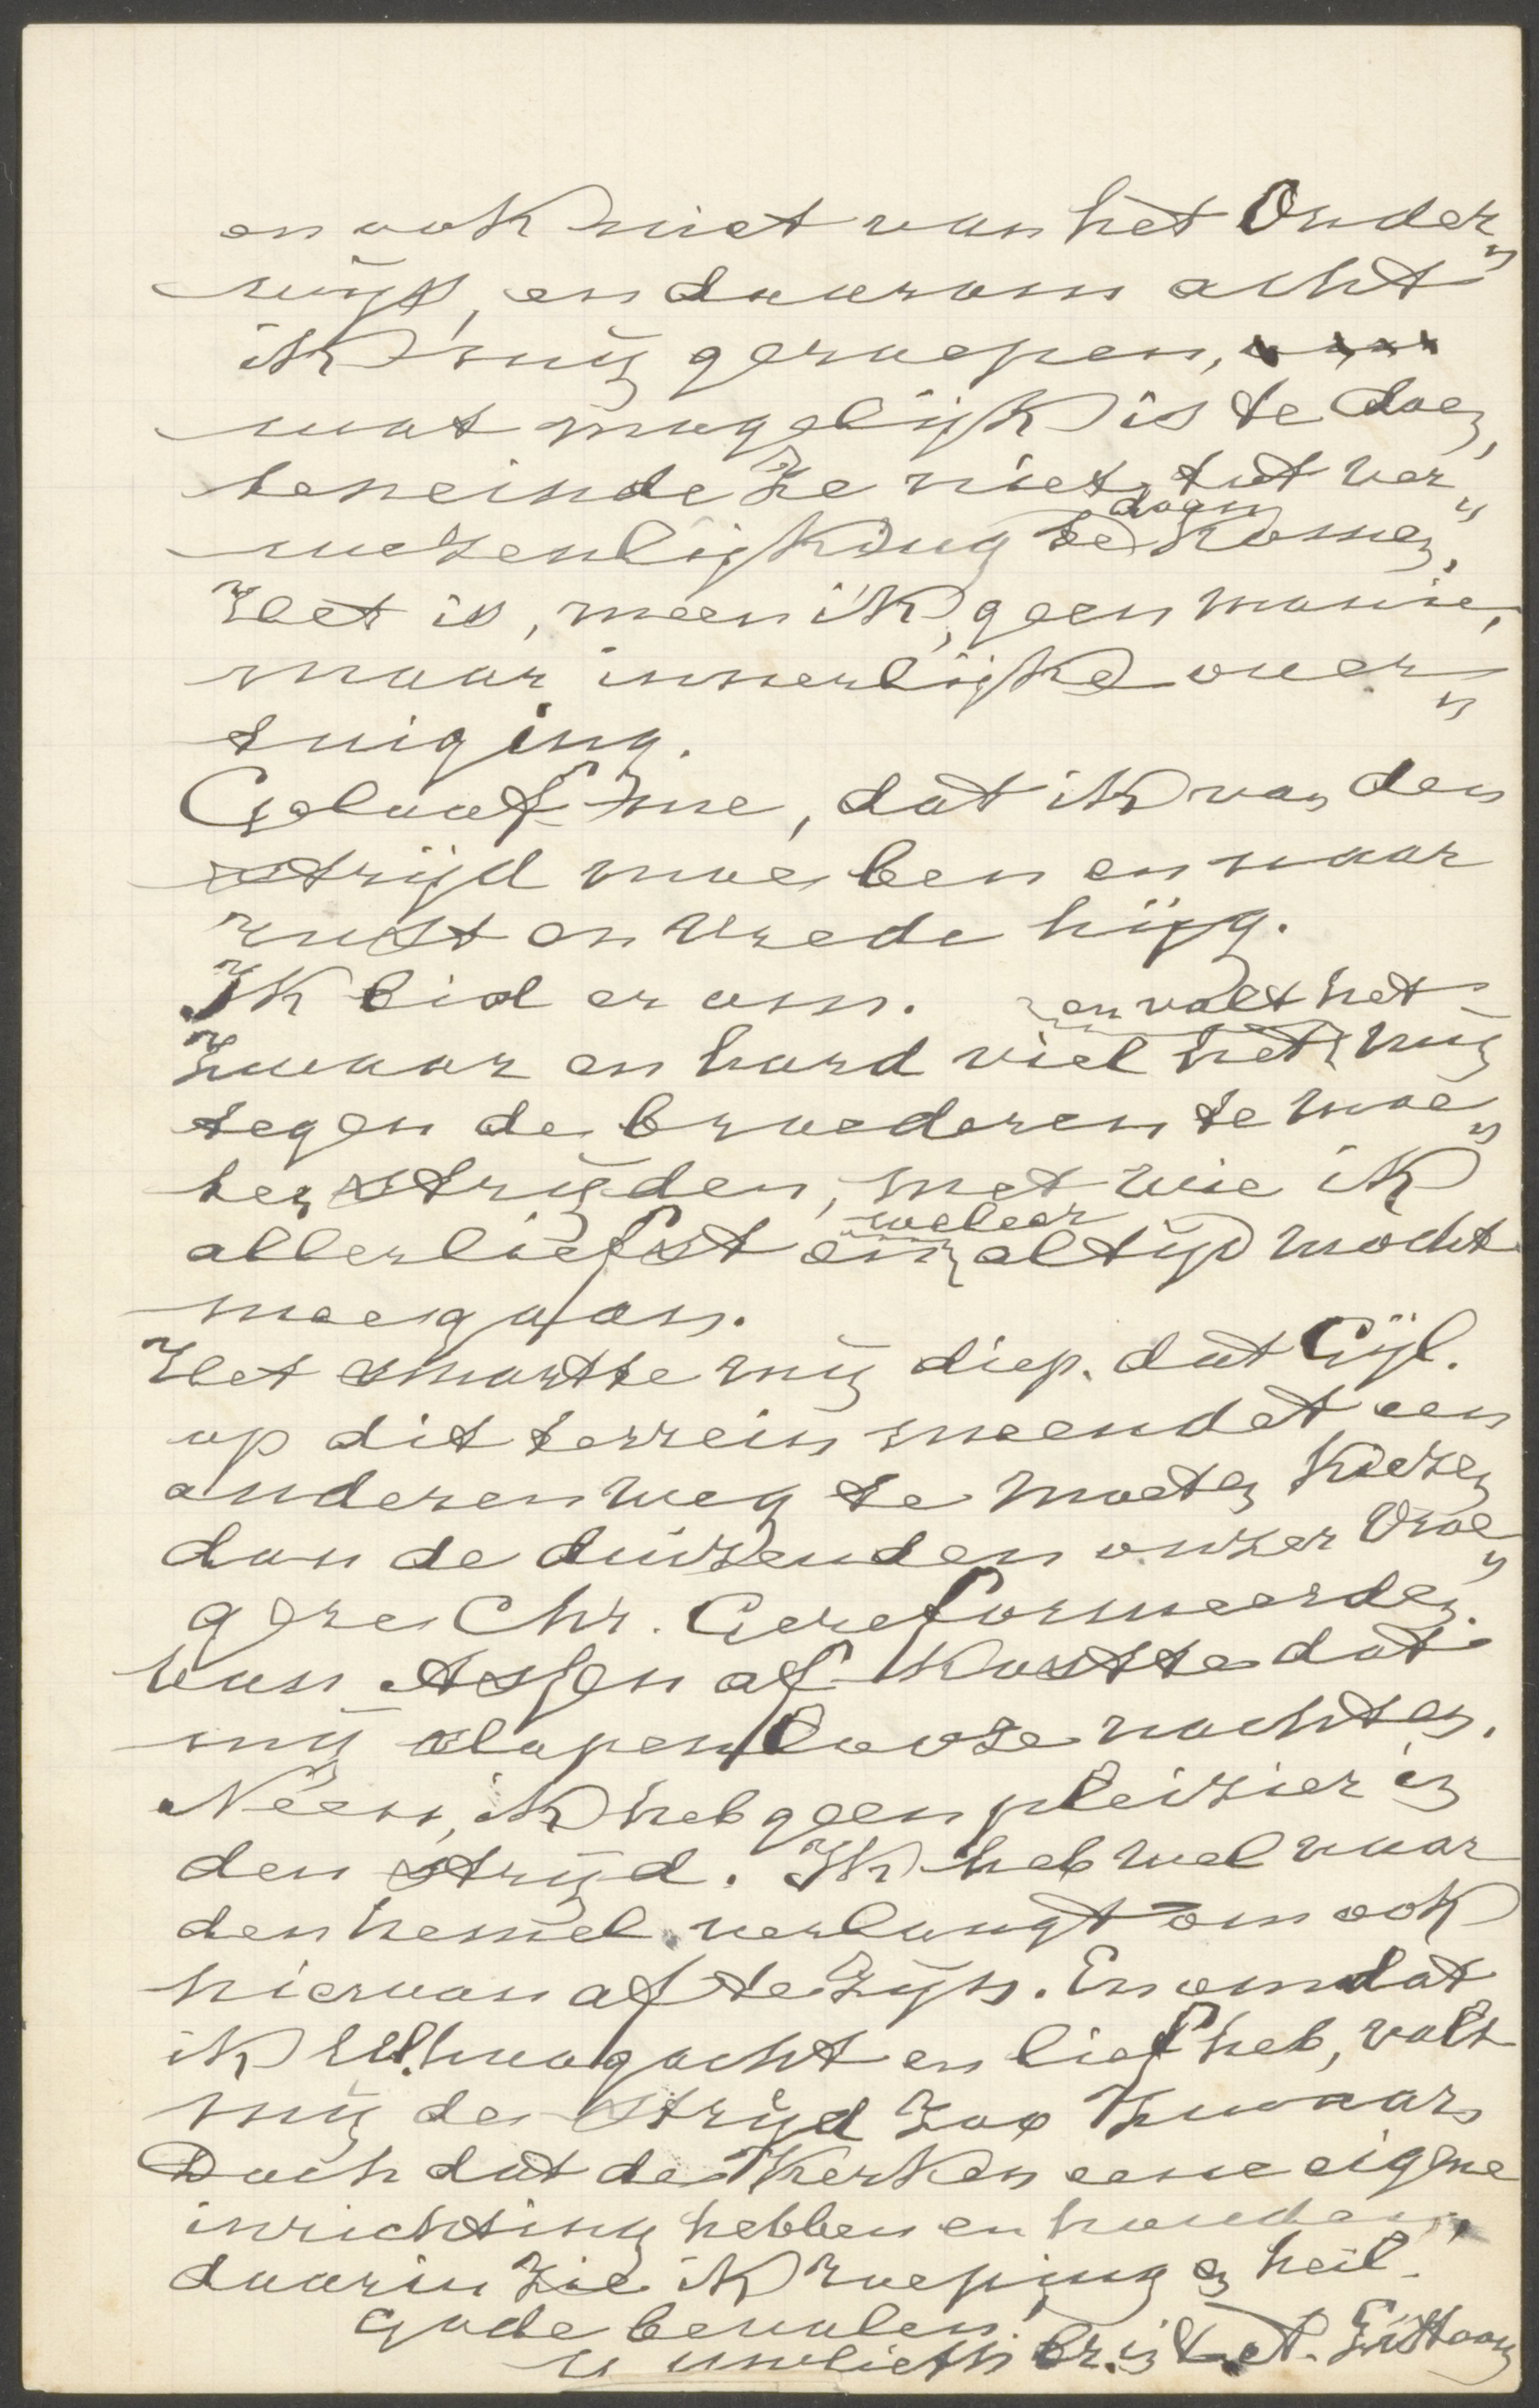 en ook niet van het Onder„
wijs, en daarom acht
ik mij geroepen,
wat mogelijk is te doen,
teneinde ze niet tot ver„
wezenlijking te doen komen.
Het is, meen ik, geen manie,
maar innerlijke over„
tuiging.
Geloof me, dat ik van den
strijd moe ben en naar
rust en vrede hijg.
Ik bid er om.
Zwaar en hard viel het en valt het mij
tegen de broederen te moe„
ten strijden, met wie ik
allerliefst en weleer altijd mocht
meegaan.
Het smartte mij diep, dat Gijl.
op dit terrein meendet een
anderen weg te moeten kiezen
dan de duizenden onzer vroe„
gere Chr. Gereformeerden.
Van Assen af kostte dat
mij slapenlooze nachten.
Neen, ik heb geen pleizier in
den strijd. Ik heb wel naar
den hemel verlangt om ook
hiervan af te zijn. En omdat
ik U hoogacht en lief heb, valt
mij de strijd zoo zwaar.
Doch dat de Kerken eene eigene
inrichting hebben en houden,
daarin zie ik roeping en heil.
Gode bevolen!
Uw liefh. br. in